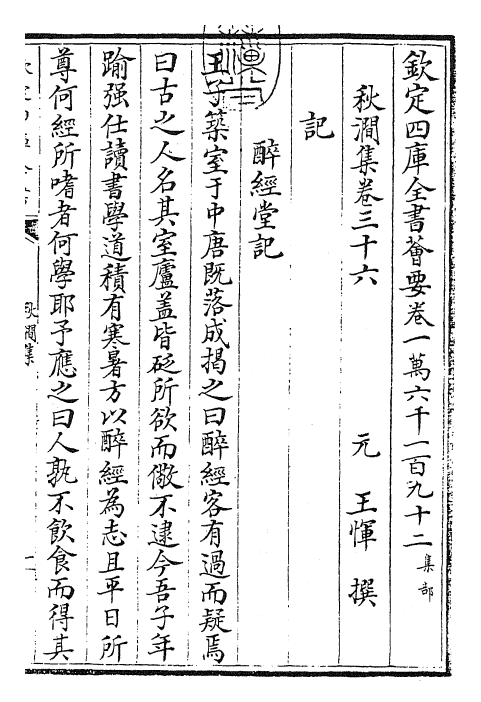 欽定四庫全書薈要卷一萬六千一百九十二 集部
秋澗集卷三十六 元 王惲 撰
記
醉經堂記
王子築室于中唐既落成揭之曰醉經客有過而疑焉
曰古之人名其室廬盖皆砭所欲而儆不逮今吾子年
踰强仕讀書學道積有寒暑方以醉經為志且平日所
尊何經所嗜者何學耶予應之曰人孰不飲食而得其
秋澗集